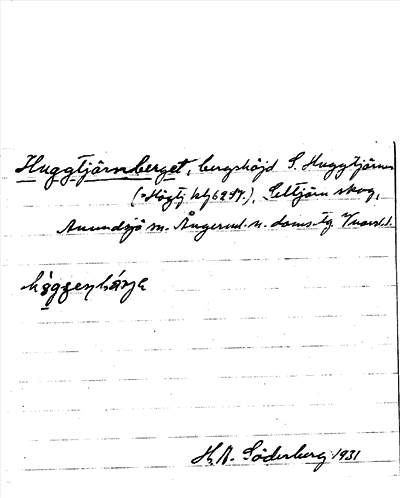 Huggtjärnberget, bergshöjd S. Huggtjärnen
(=Högtj kbg 62 SV.), Seltjärn skog,
Anundsjö sn. Ångerml. n. doms. tg. Vnorrl. l.
hǿggenbárje
H. A. Söderberg 1931